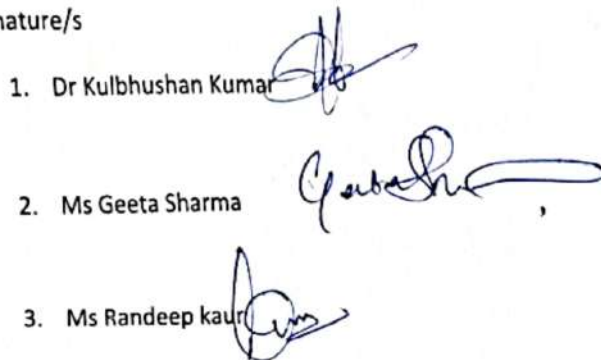 nature/s
1. Dr Kulbhushan Kumar
2. Ms Geeta Sharma
3. Ms Randeep kaur